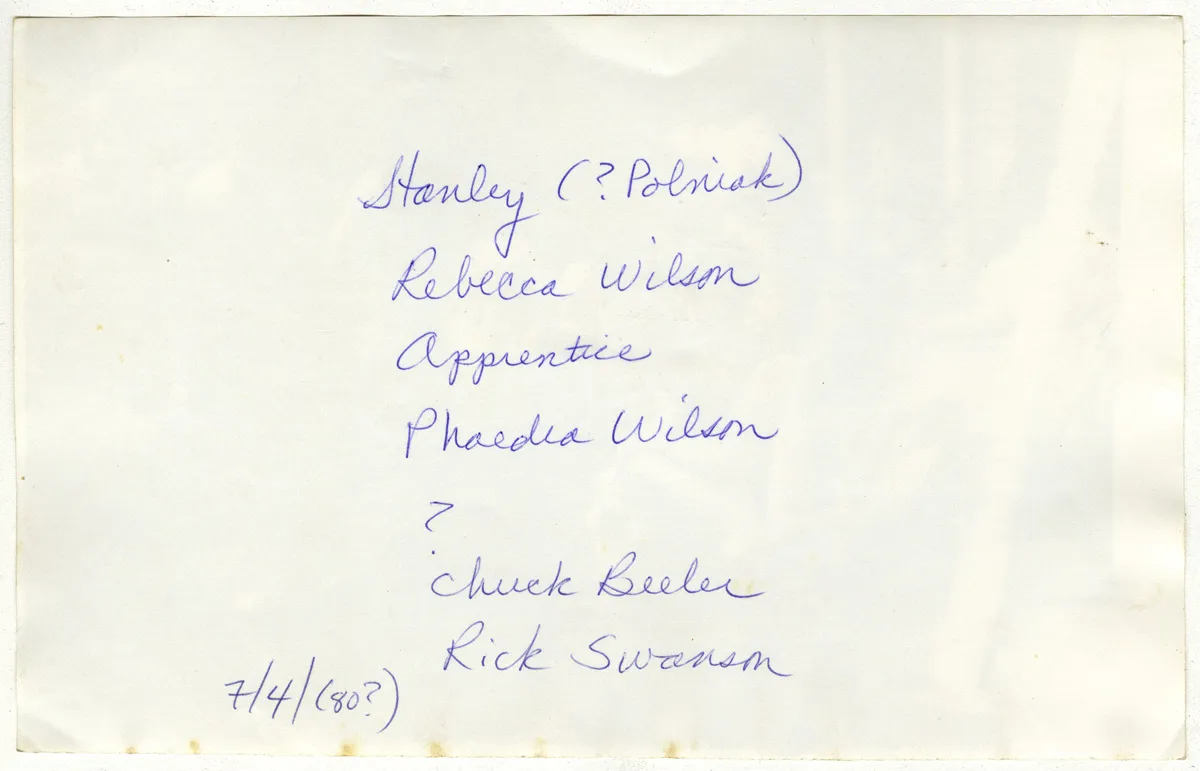 Stanley (? Polniak)
Rebecca Wilson
Apprentice
Phaedra Wilson
?
Chuck Beeler
Rick Swanson
7/4/(80?)